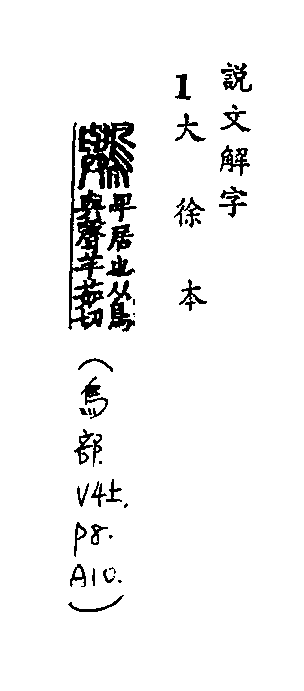 説文解字
1大徐本
鸒
卑居也从鳥
與聲羊茹切
(鳥部
V4上.
P8.
A10.)